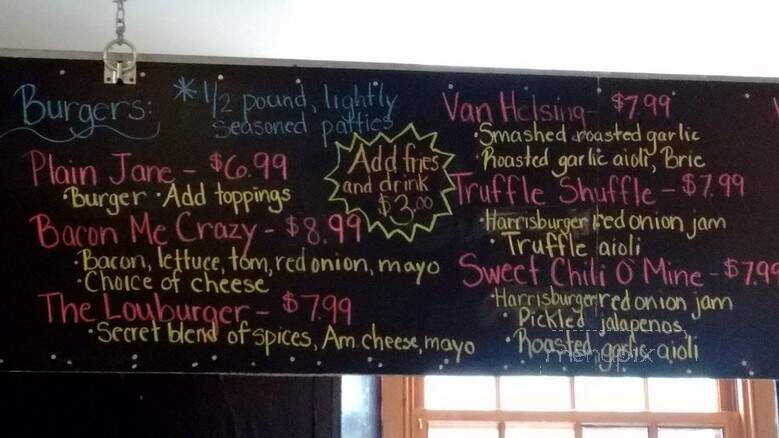 Burgers:
*1/2 pound, lightly
seasoned patties
Plain Jane - $6.99
•Burger •Add toppings
Bacon Me Crazy - $8.99
•Bacon, lettuce, tom, red onion, mayo
•Choice of cheese
The Louburger - $7.99
•Secret blend of spices, Am. cheese, mayo
Add fries
and drink
$3.00
Van Helsing - $7.99
•Smashed roasted garlic
•Roasted garlic aioli, Brie
Truffle Shuffle - $7.99
•Harrisburger red onion jam
•Truffle aioli
Sweet Chili O' Mine - $7.99
•Harrisburger red onion jam
Pickled jalapenos,
•Roasted garlic aioli
menupix